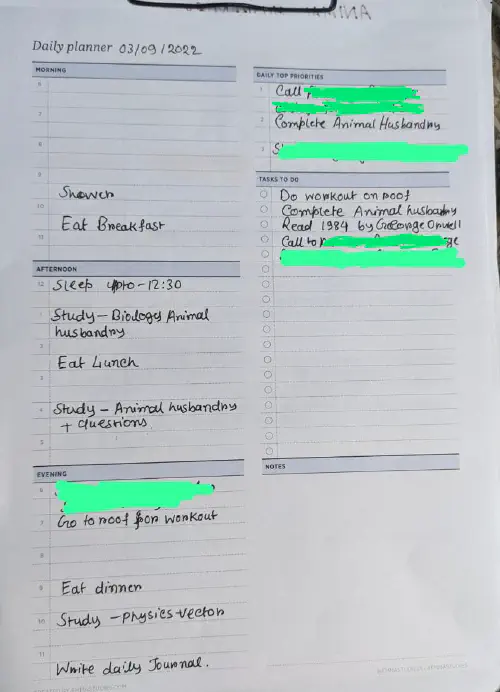 Daily planner 03/09/2022
MORNING
6
7
8
9
Shower
10
Eat Breakfast
11
AFTERNOON
12 Sleep upto-12:30
1 Study - Biology Animal
husbandry
2
Eat Lunch
3
4 Study - Animal husbandry
+ questions
5
EVENING
6
7 Go to roof for workout
8
9 Eat dinner
10 Study - physics-vector
11
Write daily Journal.
DAILY TOP PRIORITIES
1 Call
2 Complete Animal Husbandry
3
TASKS TO DO
Do workout on roof
Complete Animal husbandry
Read 1984 by George Orwell
Call to
NOTES